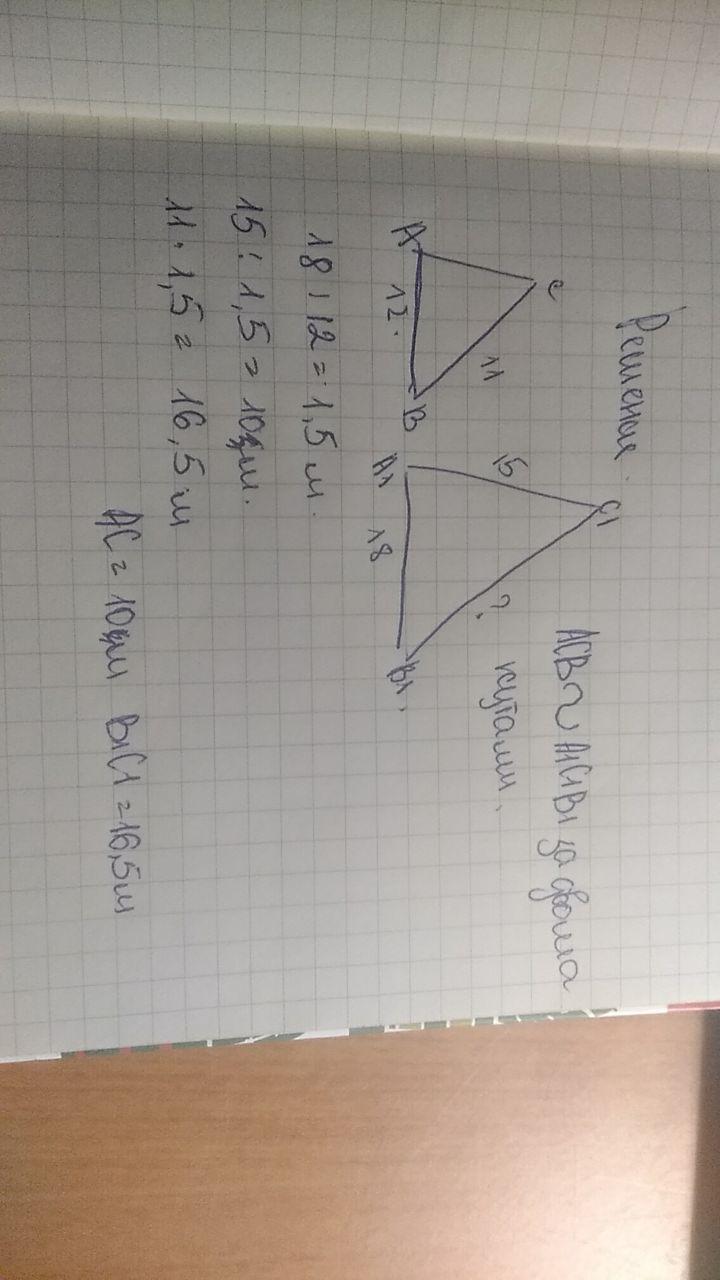 Решение.
ACB ~ A1C1B1 за двома
кутами.
C
A
12.
11
B
C1
15
A1
18
?
B1.
18 : 12 = 1,5 м.
15 : 1,5 = 10 м.
11 · 1,5 = 16,5 м
AC = 10 м B1C1 = 16,5 м